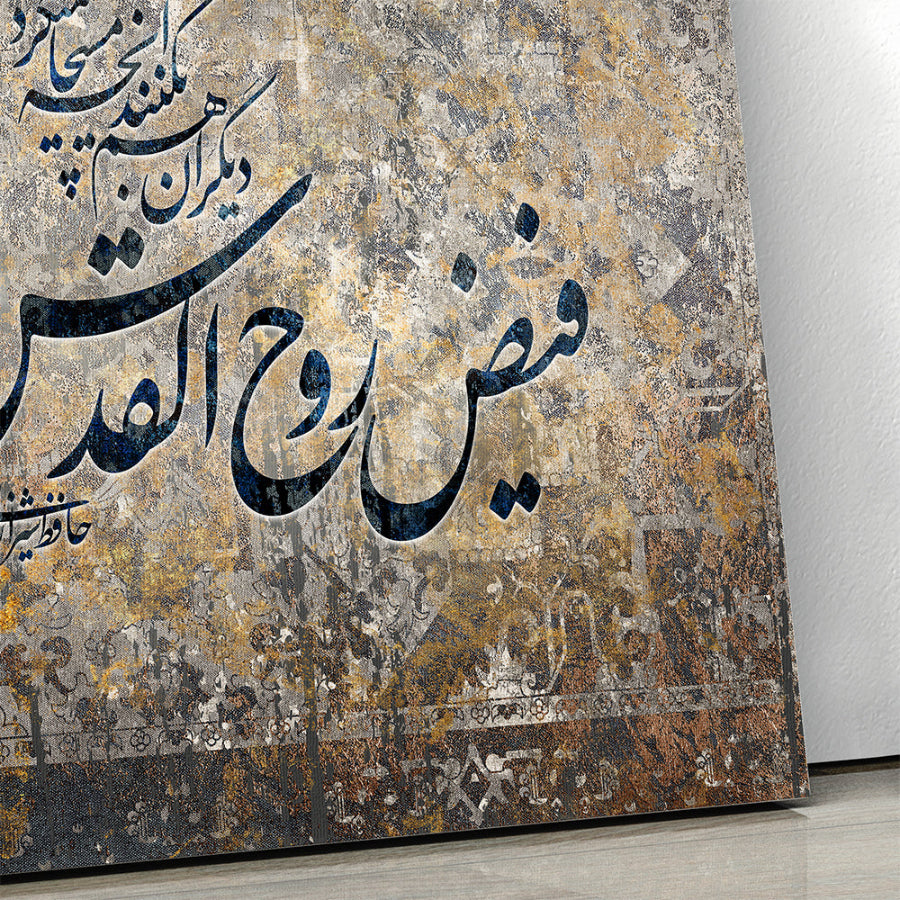 فیض روح القدس
دیگران هم بکنند آنچه مسیحا میکرد
حافظ